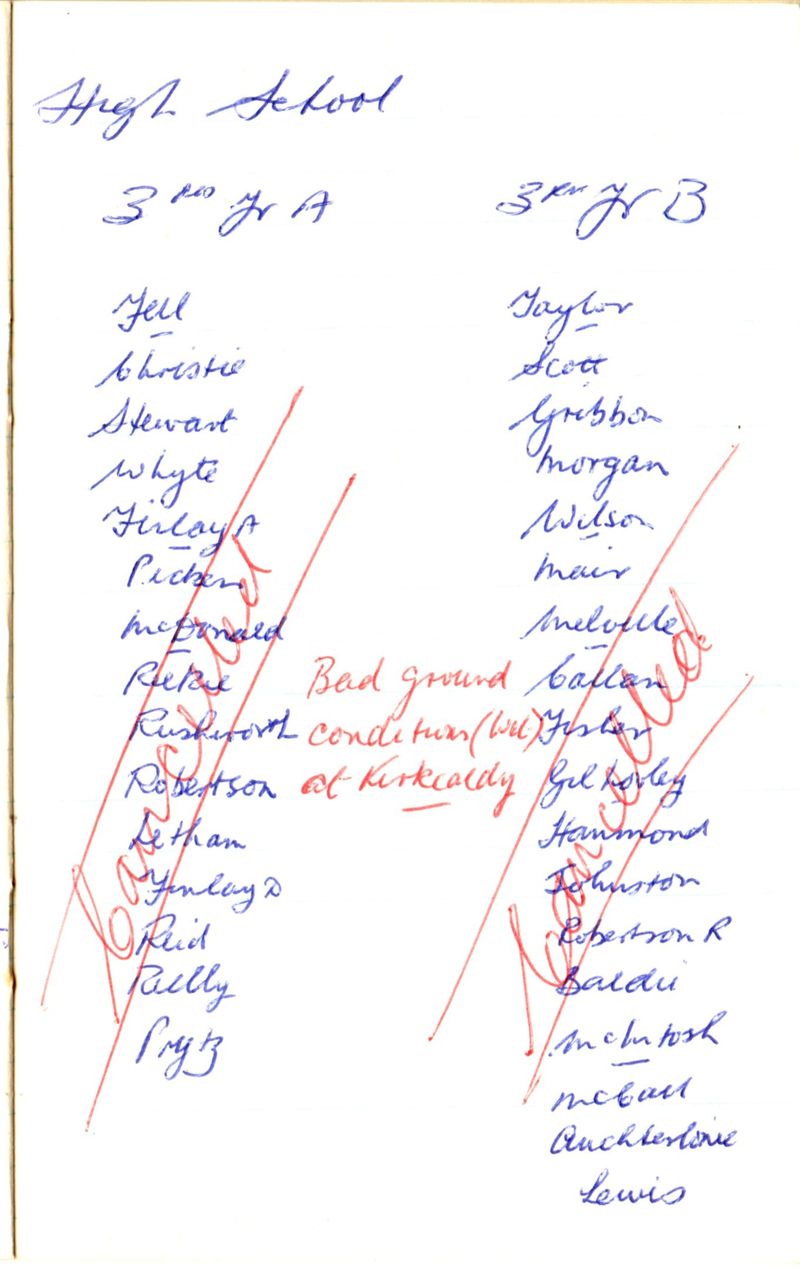 High School
3RD Yr A
Fell
Christie
Stewart
Whyte
Finlay A
Picken
McDonald
Rushworth
Robertson
Letham
Finlay D
Reid
Reilly
Prytz
Cancelled
Bad ground
conditions (Wet)
at Kirkcaldy
3RD Yr B
Taylor
Scott
Gribbon
Morgan
Wilson
Mair
Melville
Callan
Fisher
Hammond
Johnston
Robertson R
McIntosh
McCall
Auchterlonie
Lewis
Cancelled